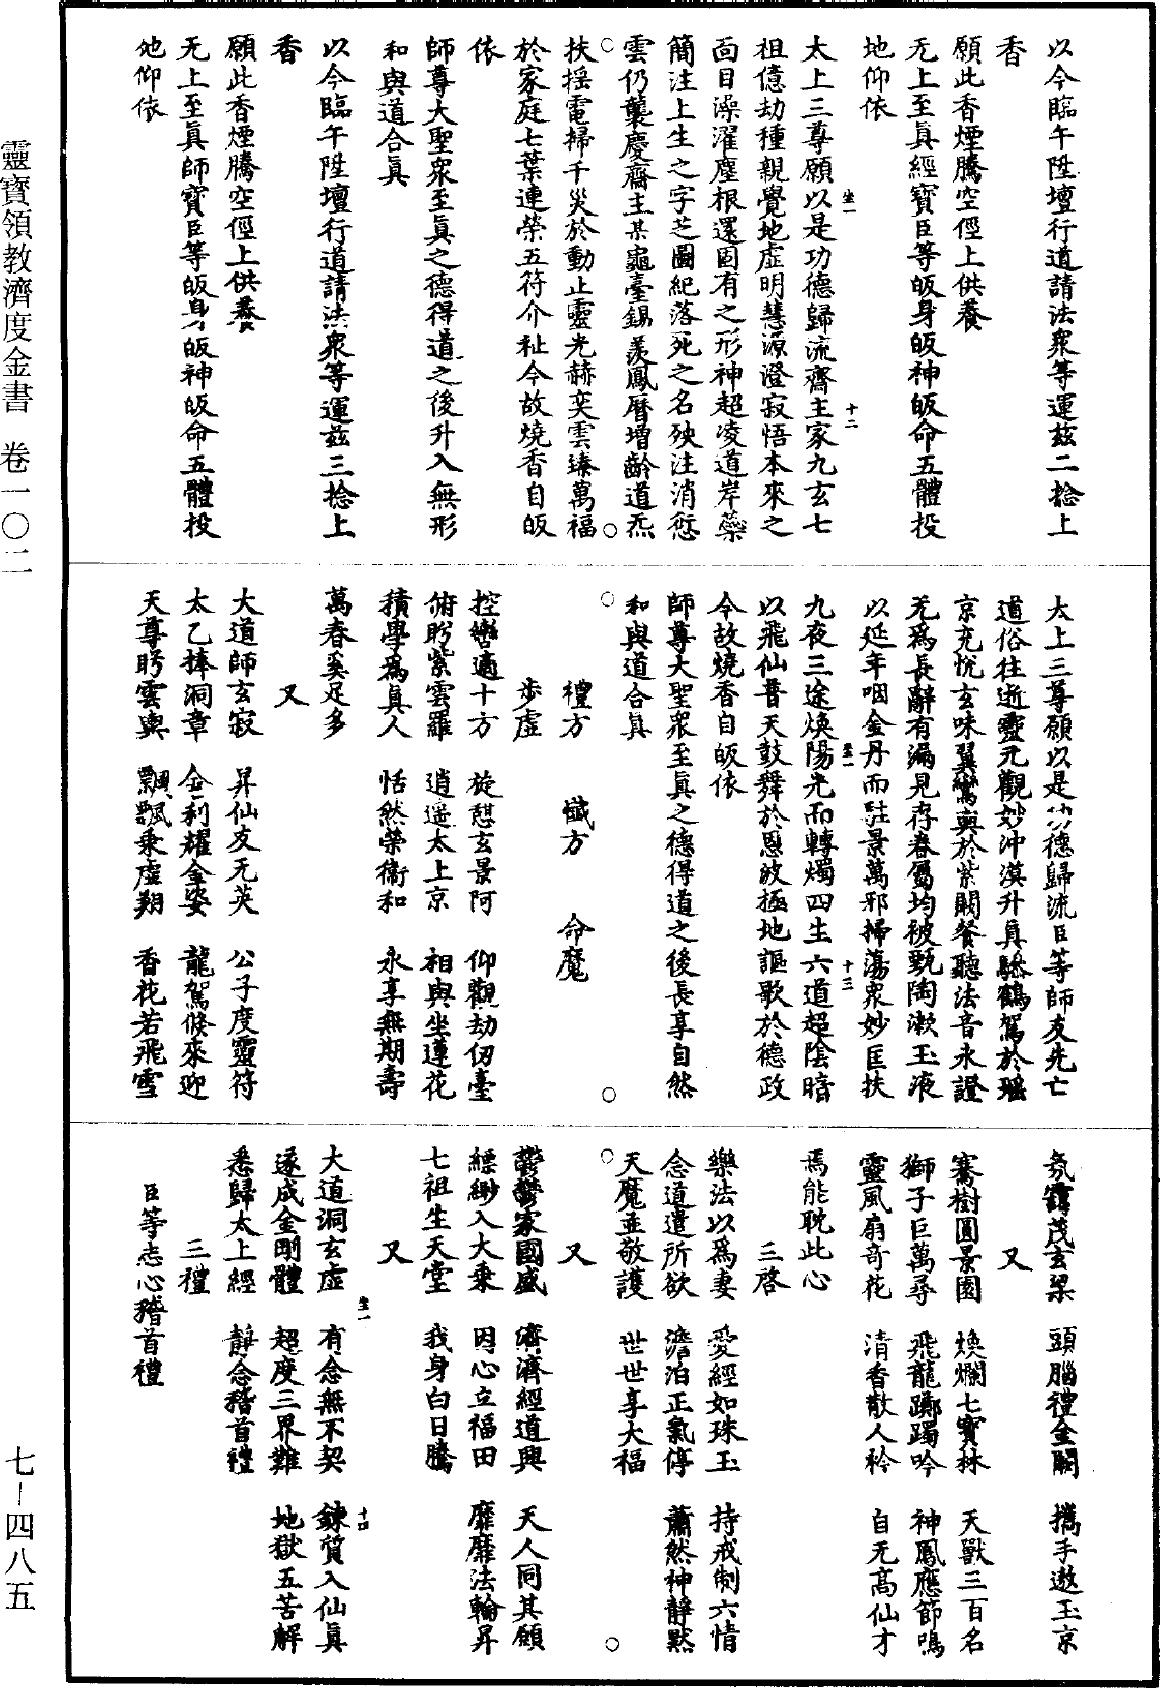 以今臨午陞壇行道請法眾等運茲二捻上
香
願此香煙騰空徑上供養
无上至眞經寶臣等皈身皈神皈命五體投
地仰依
太上三尊願以是功德歸流齋主家九玄七
祖億劫種親覺地虛明慧源澄寂悟本來之
面目澡濯塵根還固有之形神超凌道岸藥
簡注上生之字芝圖紀落死之名殃注消愆
雲仍襲慶齋主某龜臺錫羨鳳曆增齡道炁
扶搖電掃千災於動止靈光赫奕雲臻萬福
於家庭七葉連榮五符介祉今故燒香自皈
依
師尊大聖眾至眞之德得道之後升入無形
和與道合眞
以今臨午陞壇行道請法眾等運茲三捻上
香
願此香煙騰空徑上供養
无上至眞師寶臣等皈身皈神皈命五體投
地仰依
坐一
十二
太上三尊願以是功德歸流臣等師友先亡
道俗往逝靈元觀妙沖漠升眞驂鶴駕於瑤
京充悅玄味翼鸞輿於紫闕餐聽法音永證
无爲長辭有漏見存眷屬均被甄陶漱玉液
以延年咽金丹而駐景萬邪掃蕩眾妙匡扶
九夜三途煥陽光而轉燭四生六道超陰暗
以飛仙普天鼓舞於恩波極地謳歌於德政
今故燒香自皈依
師尊大聖眾至眞之德得道之後長享自然
和與道合眞
坐一
十三
禮方　懺方　命魔
步虛
控轡適十方　旋憩玄景阿　仰觀劫仞臺
俯眄紫雲羅　逍遙太上京　相與坐蓮花
積學爲眞人　恬然榮衞和　永享無期壽
萬春奚足多
又
大道師玄寂　昇仙友无英　公子度靈符
太乙捧洞章　金利耀金姿　龍駕倐來迎
天尊眄雲輿　飄飄乘虛翔　香花若飛雪
氛靄茂玄梁　頭腦禮金闕　攜手遨玉京
又
騫樹圓景園　煥爛七寶林　天獸三百名
獅子巨萬尋　飛龍躑躅吟　神鳳應節鳴
靈風扇奇花　清香散人衿　自无高仙才
焉能耽此心
三啓
樂法以爲妻　愛經如珠玉　持戒制六情
念道遣所欲　澹泊正氣停　蕭然神靜默
天魔並敬護　世世享大福
又
鬱鬱家國盛　濟濟經道興　天人同其願
縹緲入大乘　因心立福田　靡靡法輪昇
七祖生天堂　我身白日騰
又
大道洞玄虛　有念無不契　鍊質入仙眞
遂成金剛體　超度三界難　地獄五苦解
悉歸太上經　靜念稽首禮
三禮
臣等志心稽首禮
坐一
十四
靈寶領教濟度金書　卷一〇二
七－四八五